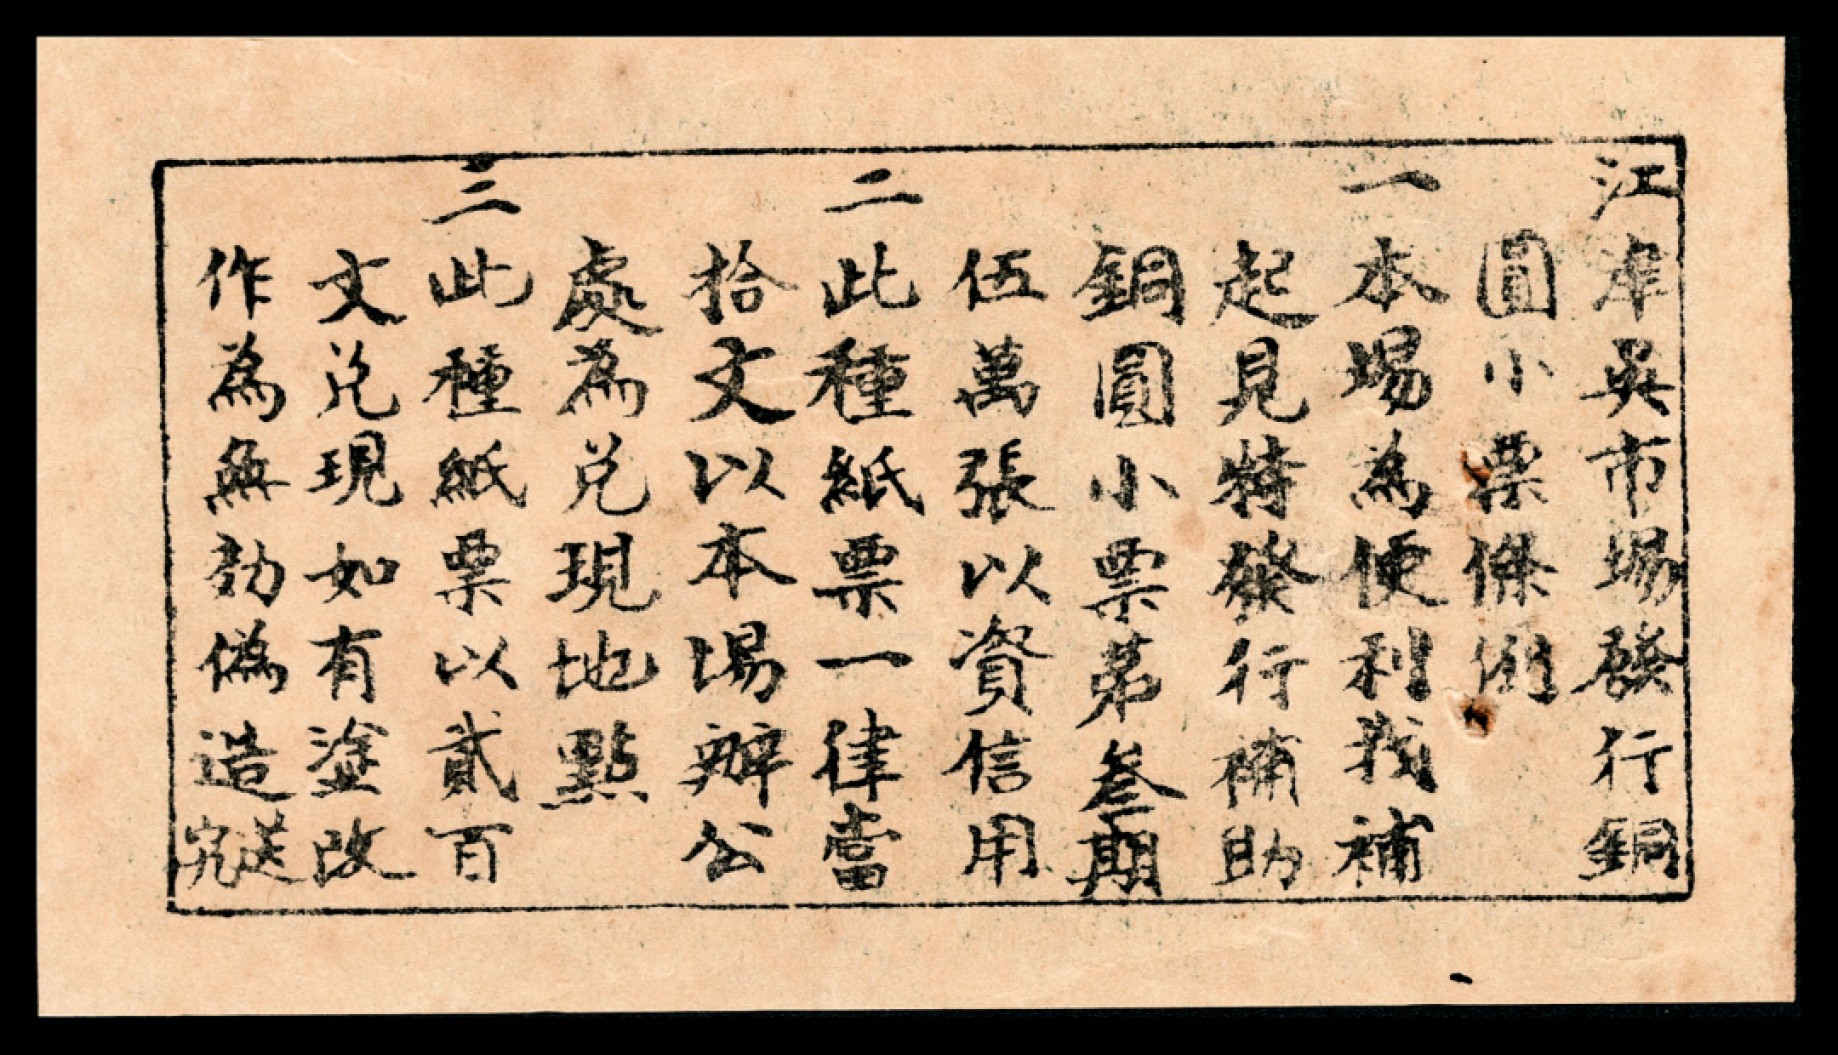 江岸吳市場發行銅
圓小票條例
一本場為便利找補
起見特發行補助
銅圓小票第叁期
伍萬張以資信用
二此種紙票一律當
拾文以本場辦公
處為兌現地點
三此種紙票以貳百
文兌現如有塗改
作為無効偽造送究